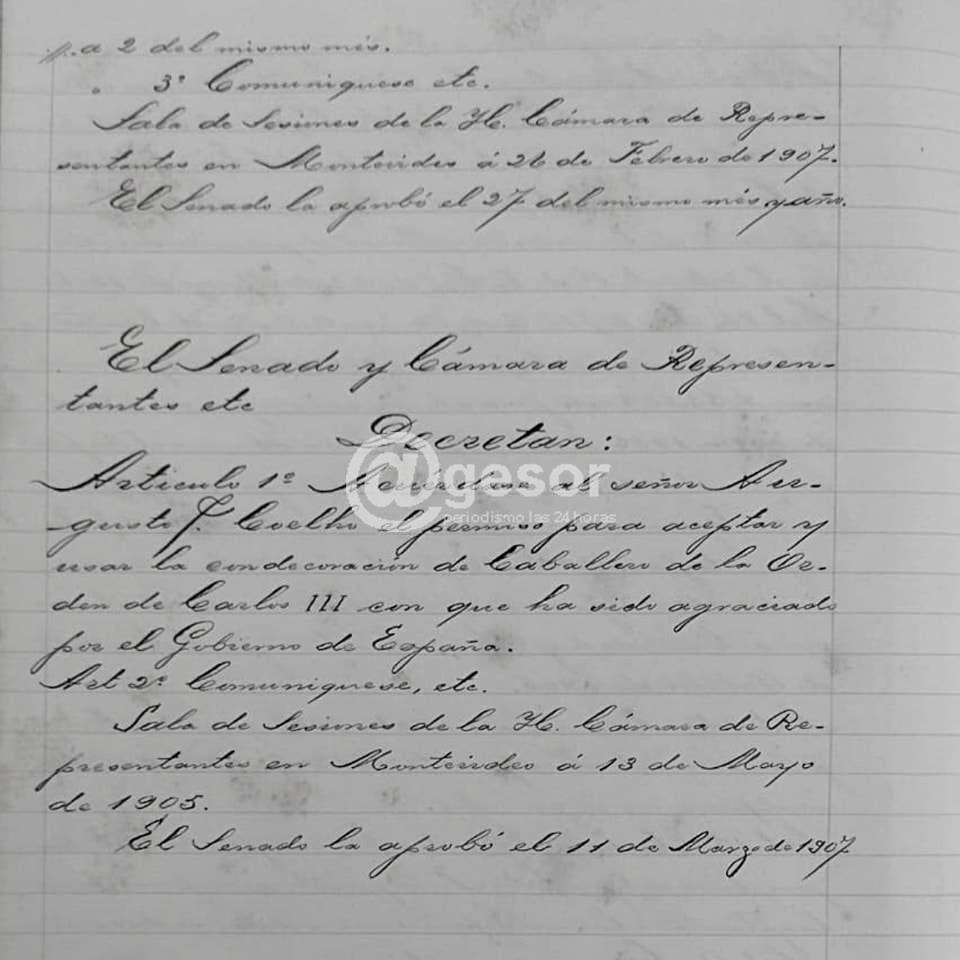 p.a 2 del mismo més.
" 3º Comuniquese etc.
Sala de Sesiones de la H. Cámara de Repre-
sentantes en Montevideo á 26 de Febrero de 1907.
El Senado la aprobó el 27 del mismo més y año.
El Senado y Cámara de Represen-
tantes etc
Decretan:
Articulo 1º Acuerdase al señor Au-
-gusto J. Coelho el permiso para aceptar y
usar la condecoración de Caballero de la Or-
den de Carlos III con que ha sido agraciado
por el Gobierno de España.
Art 2º Comuniquese, etc.
Sala de Sesiones de la H. Cámara de Re-
presentantes en Montevideo á 13 de Mayo
de 1905.
El Senado la aprobó el 11 de Marzo de 1907
@gesor
periodismo las 24 horas